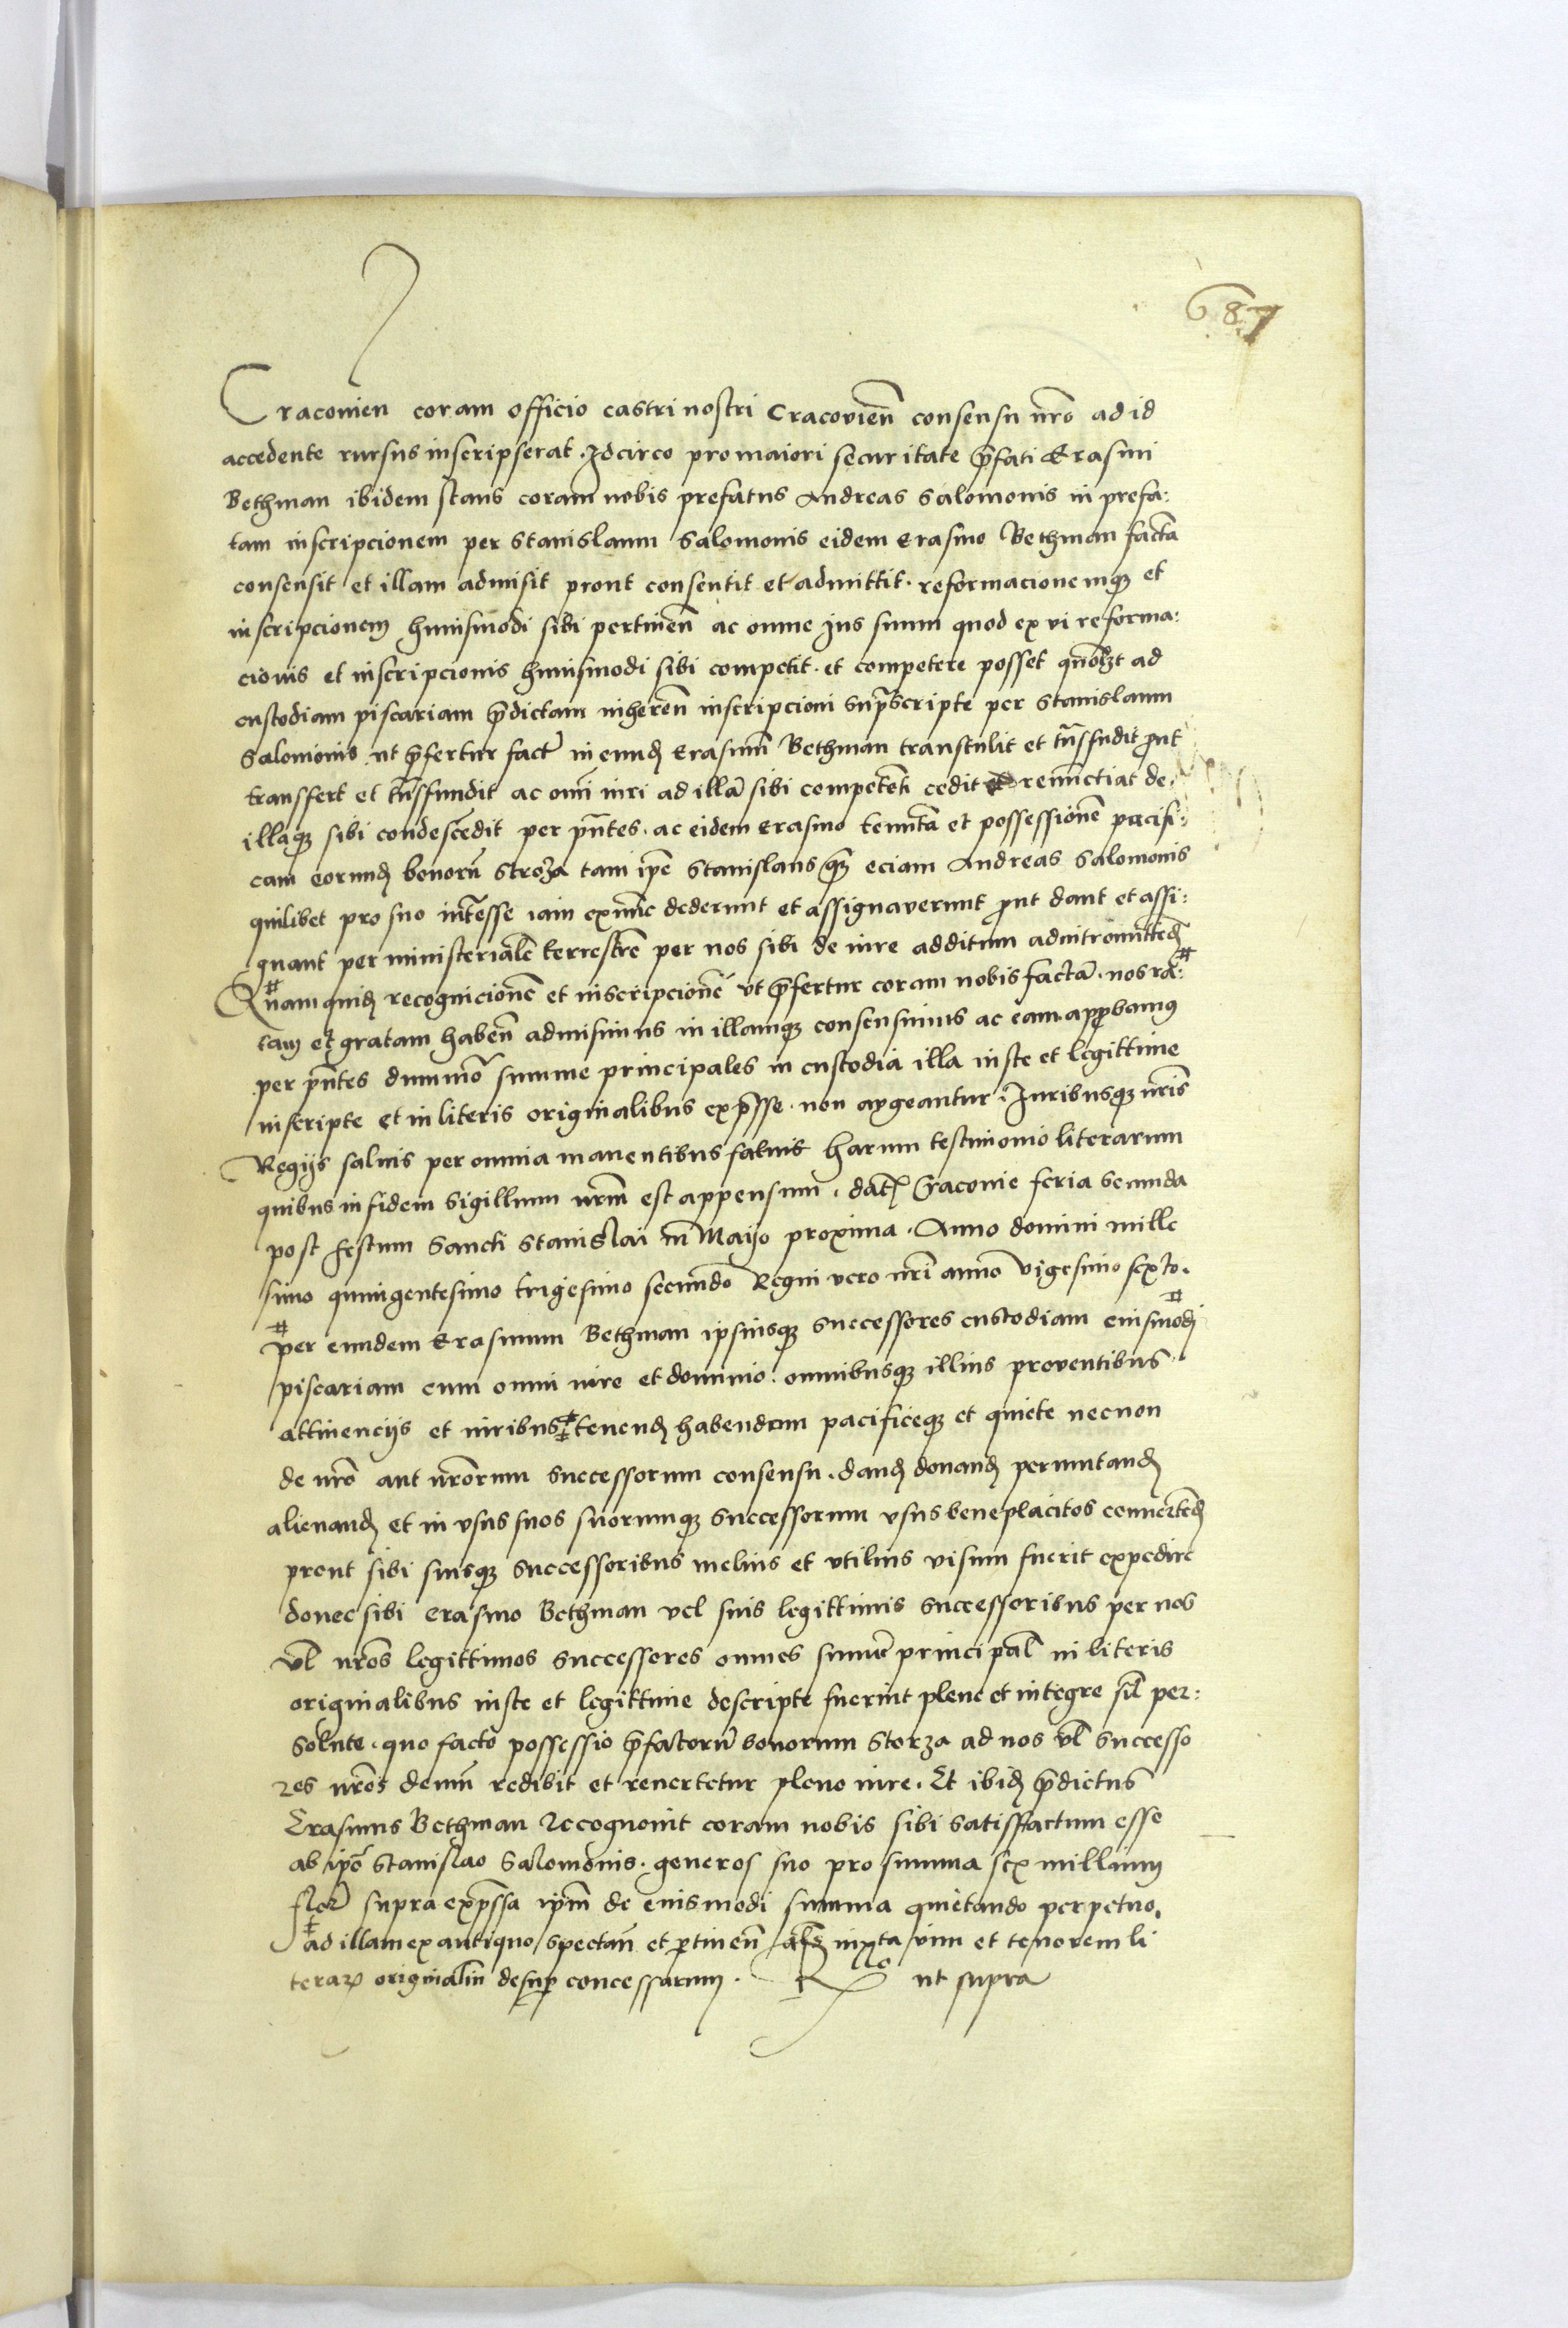 687
Cracovien coram officio castri nostri Cracovien̄ consensu nr̄o ad id
accedente rursus inscripserat. Idcirco pro maiori securitate p̄fati Erasmi
Bethman ibidem stans coram nobis prefatus Andreas Salomonis in prefa:
tam inscripcionem per Stanislaum Salomonis eidem Erasmo Bethman factā
consensit et illam admisit prout consentit et admittit. reformacionemqꝫ et
inscripcionem huiusmodi sibi pertinen̄ ac omne Jus suum quod ex vi reforma:
cionis et inscripcionis huiusmodi sibi competit. et competere posset quōlꝫt ad
custodiam piscariam p̄dictam inheren̄ inscripcioni sup̄scripte per Stanislaum
Salomonis ut p̄fertur fact̄ in eundꝫ Erasmū Bethman transtulit et tn̄sfudit ꝓut
transfert et tn̄sfundit ac om̄i iuri ad illā sibi competēti cedit et renūctiat de
illaqꝫ sibi condescēdit per pn̄tes. ac eidem Erasmo tenutā et possessionē pacifi:
cam eorundꝫ bonorū Stroża tam ip̄e Stanislaus qꝫ eciam Andreas Salomonis
quilibet pro suo intēsse iam exnūc dederunt et assignaverunt ꝓut dant et assi:
gnant per ministerialē terrestrē per nos sibi de iure additum ad intromittēdꝫ #
# Quamquidꝫ recognicionē et inscripcionē ut p̄fertur coram nobis factā. nos ra:
tam et gratam haben̄ admisimus in illamqꝫ consensimus ac eam appꝓbamus
per pn̄tes dummō summe principales in custodia illa iuste et legittime
inscripte et in literis originalibus exp̄sse. non augeantur. Juribusqꝫ nr̄is
Regijs salvis per omnia manentibus salvis harum testimonio literarum
quibus in fidem Sigillum nr̄m est appensum. dat̄ Cracovie feria secunda
post festum Sancti Stanislai in Maijo proxima. Anno domini mille
simo quingentesimo trigesimo secundo Regni vero nr̄i anno vigesimo sexto.
# per eundem Erasmum Bethman ipsiusqꝫ successores custodiam eiusmodi #
piscariam cum omni iure et dominio. omnibusqꝫ illius proventibus.
attinencijs et iuribus ‡ tenendꝫ habendum pacificeqꝫ et quiete necnon
de nr̄o aut nr̄orum successorum consensu. dandꝫ donandꝫ permutandꝫ
alienandꝫ et in usus suos suorumqꝫ successorum usus beneplacitos convertēdꝫ
prout sibi suisqꝫ successoribus melius et utilius visum fuerit expedire
donec sibi Erasmo Bethman vel suis legittimis successoribus per nos
vl̄ nr̄os legittimos successores omnes sume principal̄ in literis
originalibus iuste et legittime descripte fuerint plene et integre sil̄ per:
solute. quo facto possessio p̄factorū bonorum Storza ad nos vl̄ successo
res nr̄os demū redibit et revertetur pleno iure. Et ibidꝫ p̄dictus
Erasmus Bethman recognovit coram nobis sibi satisfactum esse
ab ip̄o Stanislao Salomonis. generos suo pro summa sex millium
flor̄ supra exp̄ssa ip̄m de eiusmodi summa quietando perpetuo.
‡ ad illam ex antiquo spectan̄ et ꝑtinen̄ als iuxta vim et tenorem li
terarꝫ originaliū desuꝑ concessarum. Rlo ut supra